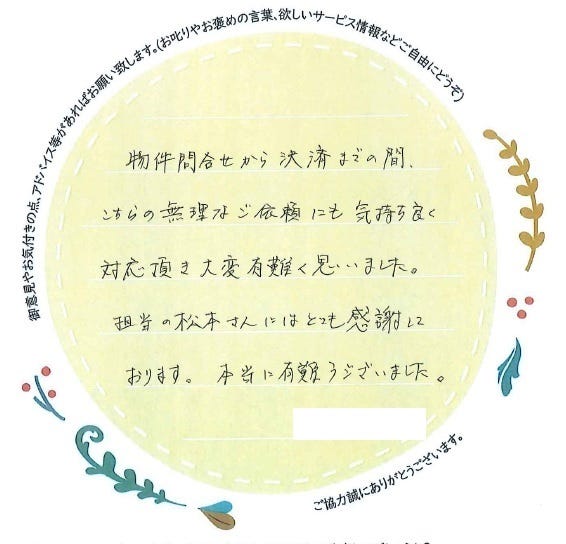 御意見やお気付きの点、アドバイス等があればお願い致します。(お叱りやお褒めの言葉、欲しいサービス情報などご自由にどうぞ)
物件問合せから決済までの間、
こちらの無理なご依頼にも気持ち良く
対応頂き大変有難く思いました。
担当の松本さんにはとても感謝して
おります。本当に有難うございました。
ご協力誠にありがとうございます。